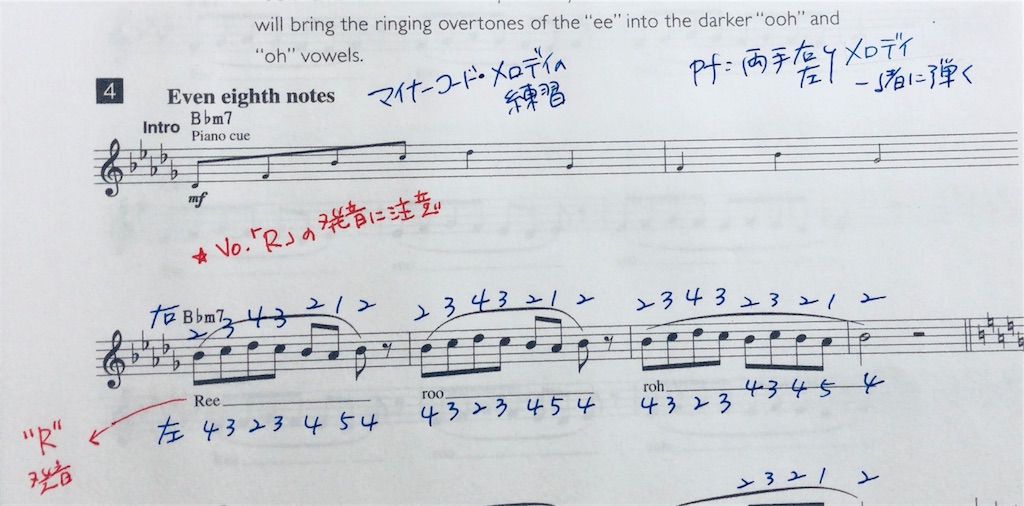 will bring the ringing overtones of the “ee” into the darker “ooh” and
“oh” vowels.
pf: 両手右左でメロディ
一緒に弾く
4 Even eighth notes
マイナーコード・メロディの
練習
Intro B♭m7
Piano cue
mf
★ Vo.「R」の発音に注意!!
右 B♭m7
2 3 4 3 2 1 2 2 3 4 3 2 1 2 2 3 4 3 2 3 2 1 2
Ree roo roh
左 4 3 2 3 4 5 4 4 3 2 3 4 5 4 4 3 2 3 4 3 4 5 4
"R"
発音
2 3 2 1 2